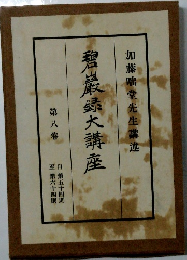 加藤咄堂先生講述
碧巌録大講座
第八巻
自 第五十四則
至 第六十四則